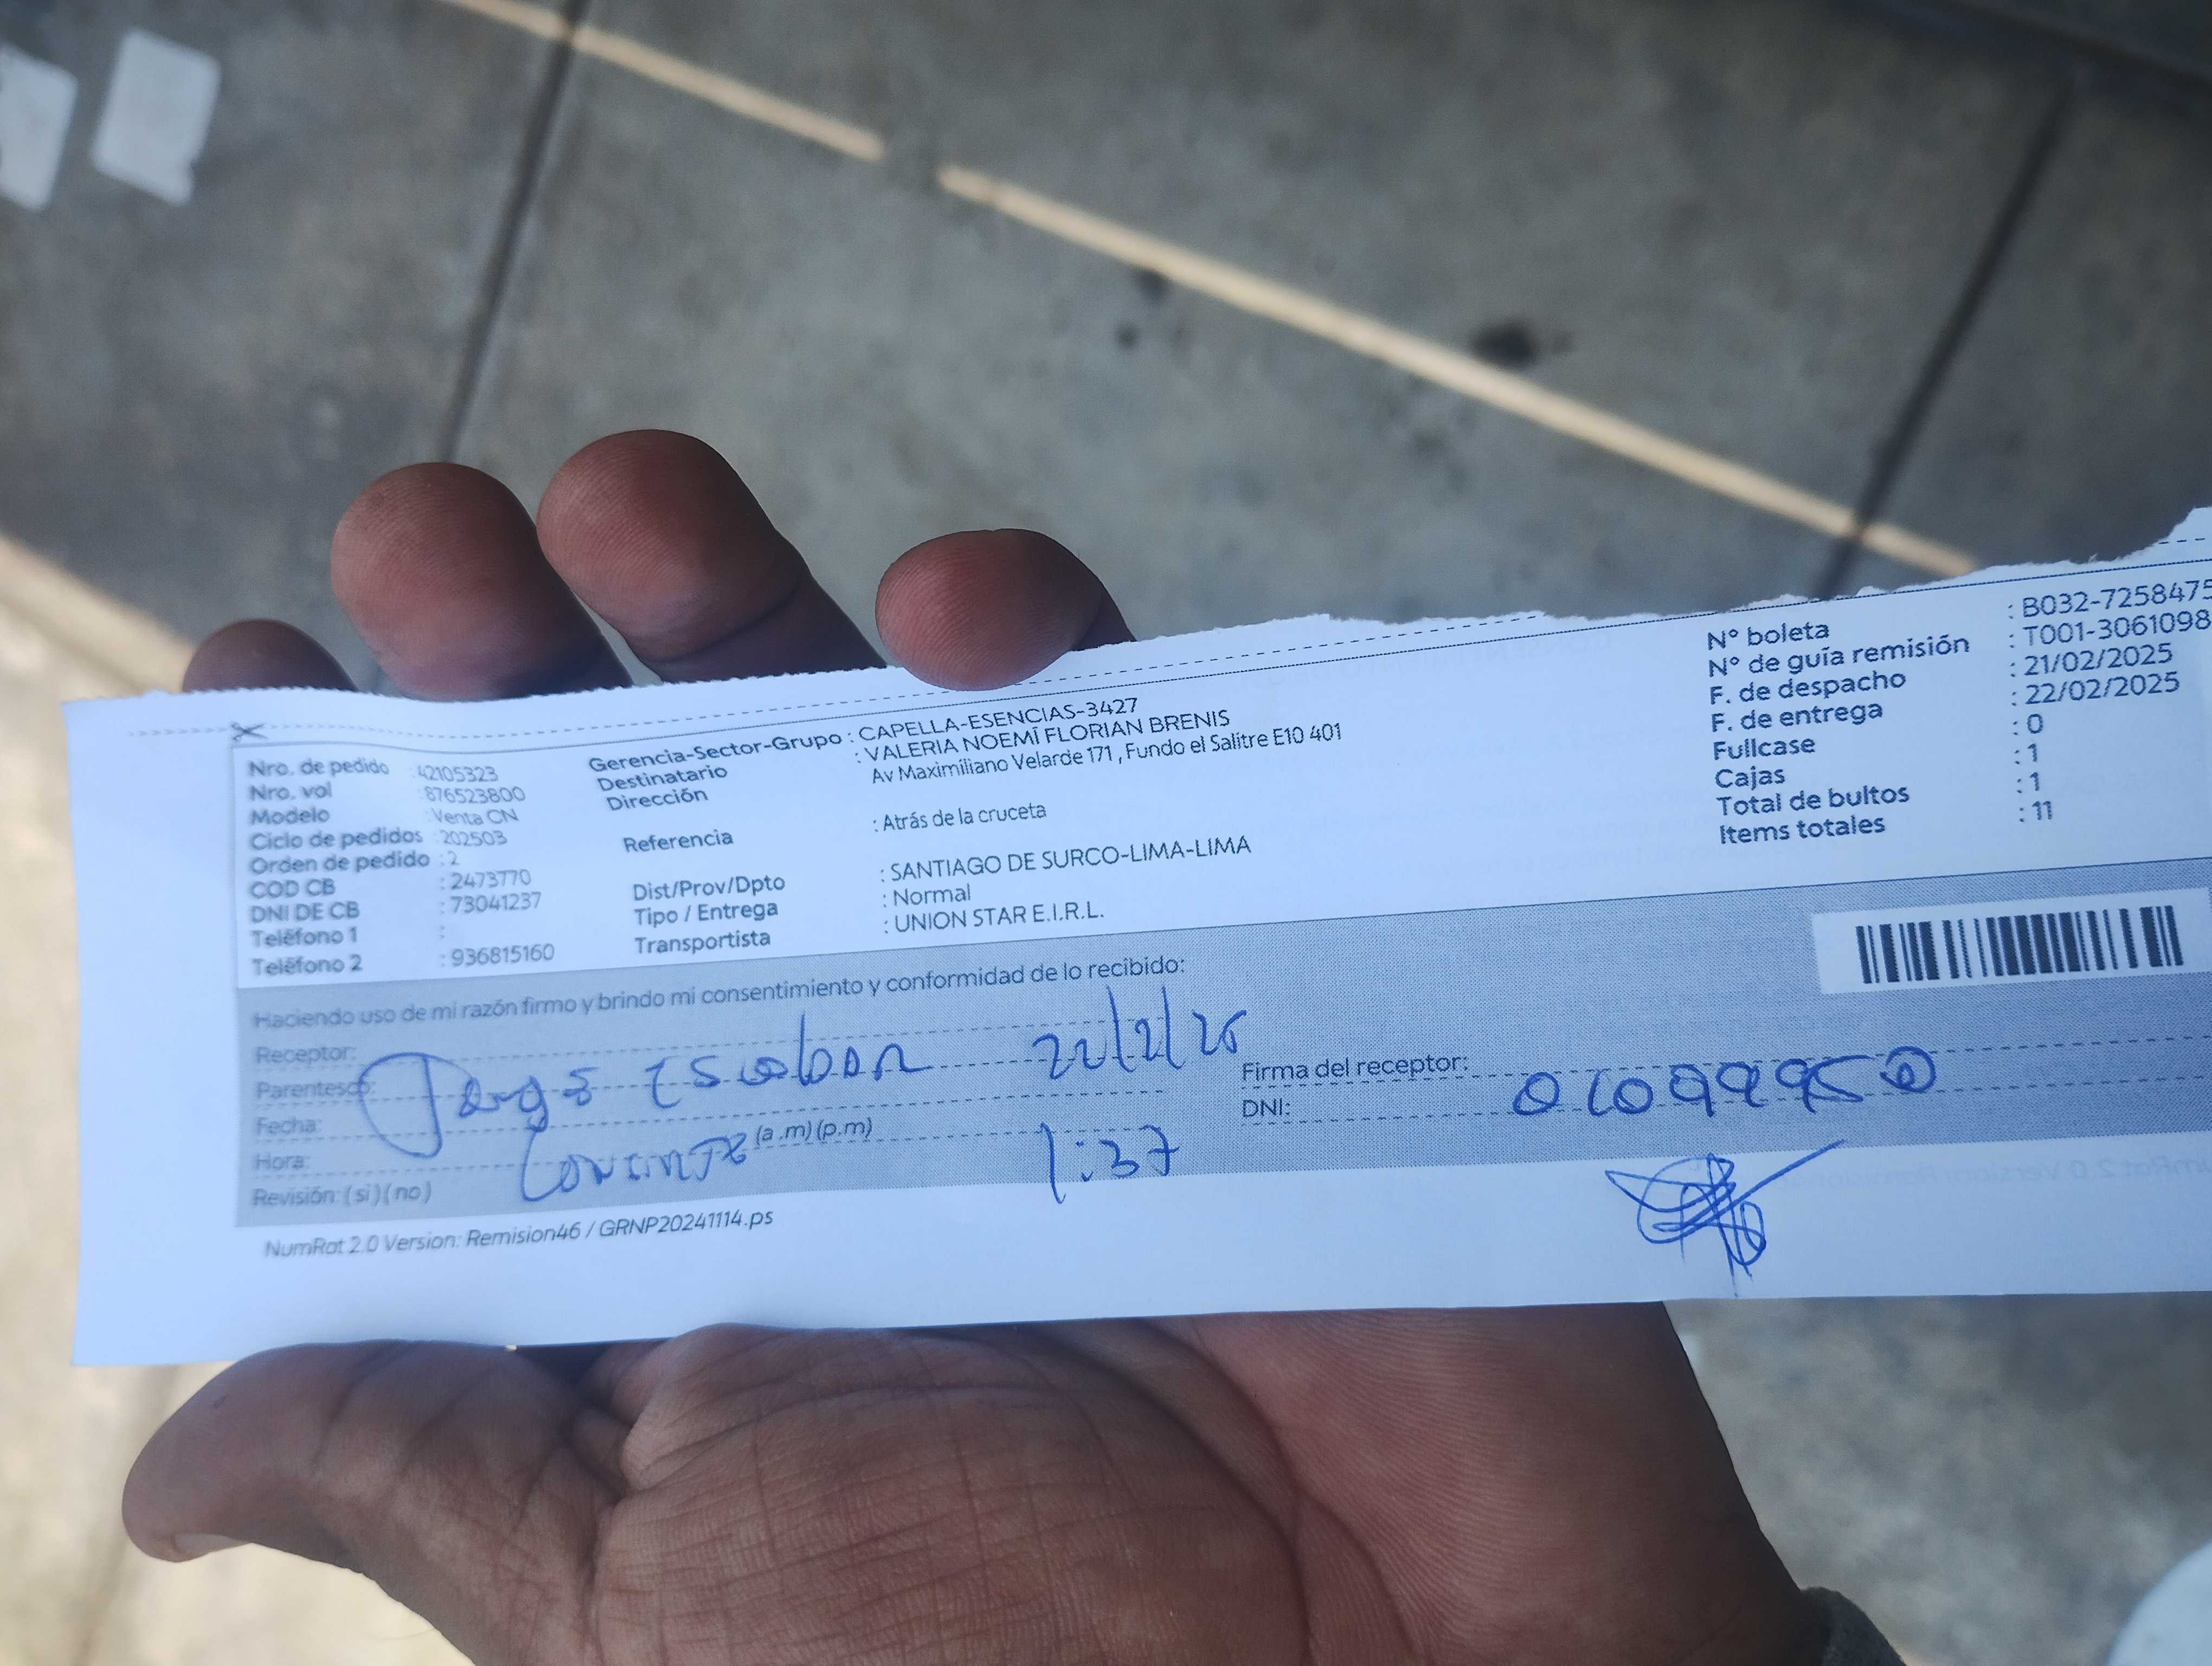 Nro. de pedido : 42105323
Nro. vol : 876523800
Modelo : Venta CN
Ciclo de pedidos : 202503
Orden de pedido : 2
COD CB : 2473770
DNI DE CB : 73041237
Teléfono 1 :
Teléfono 2 : 936815160
Gerencia-Sector-Grupo : CAPELLA-ESENCIAS-3427
Destinatario : VALERIA NOEMÍ FLORIAN BRENIS
Dirección Av Maximiliano Velarde 171 , Fundo el Salitre E10 401
Referencia : Atrás de la cruceta
Dist/Prov/Dpto : SANTIAGO DE SURCO-LIMA-LIMA
Tipo / Entrega : Normal
Transportista : UNION STAR E.I.R.L.
N° boleta : B032-7258475
N° de guía remisión : T001-3061098
F. de despacho : 21/02/2025
F. de entrega : 22/02/2025
Fullcase : 0
Cajas : 1
Total de bultos : 1
Items totales : 11
Haciendo uso de mi razón firmo y brindo mi consentimiento y conformidad de lo recibido:
Receptor:
Parentesco: Escobar
Fecha:
Hora: (a .m) (p.m) 1:37
Revisión: (si) (no)
Firma del receptor:
DNI:
NumRat 2.0 Version: Remision46 / GRNP20241114.ps